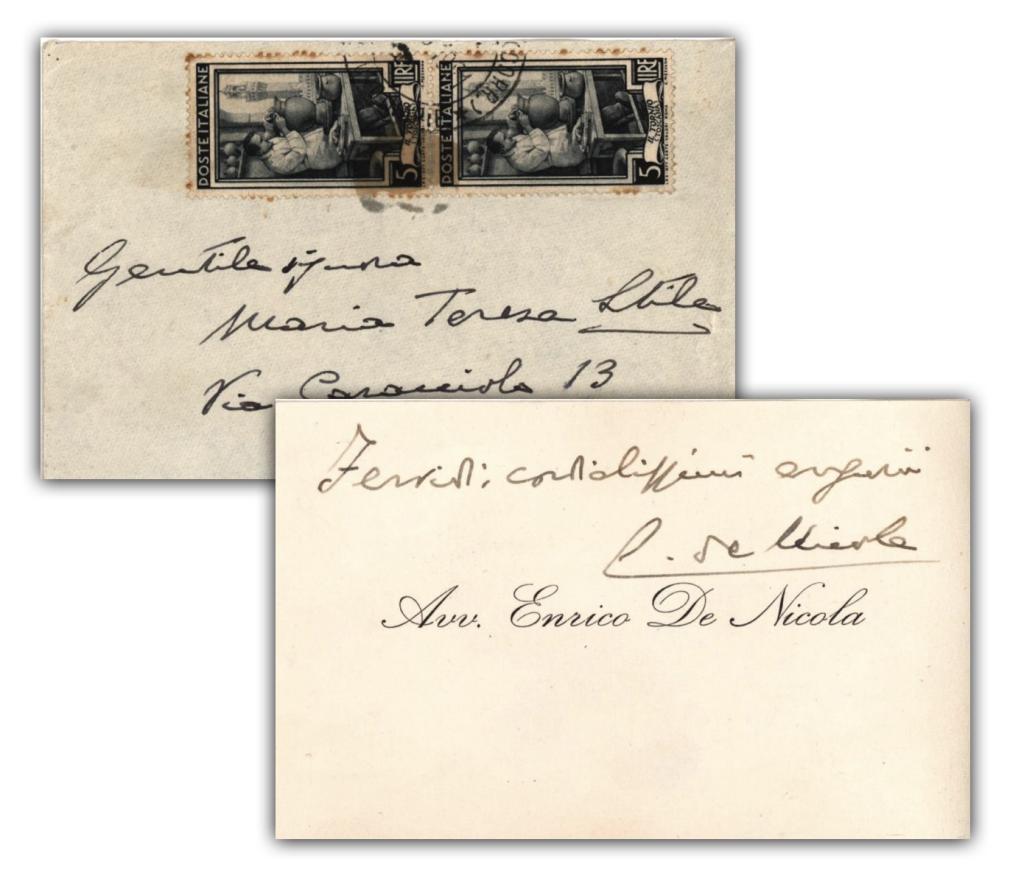 POSTE ITALIANE
5 LIRE
IL TORNIO
POSTE ITALIANE
5 LIRE
IL TORNIO
Gentile signora
Maria Teresa Stile
Via Caracciolo 13
Fervidi, cordialissimi auguri
E. de Nicola
Avv. Enrico De Nicola